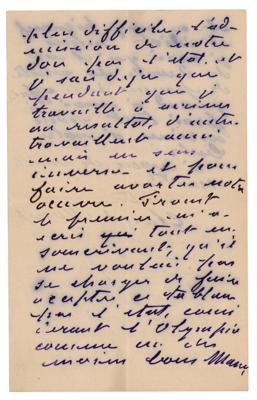 plus difficile, l'ad-
mission de notre
don par l'état, et
je sais déjà que
pendant que j
travaille à arriver
au résultat, d'autres
travaillent aussi
mais en sens
inverse et pour
faire avorter notre
œuvre. Proust
le premier m'a
écrit qui tout en
souscrivant, qu'il
ne voulait pas
se charger de faire
accepter ce tableau
par l'état, consi
dérant l'Olympia
comme un des
moins bons Manet,